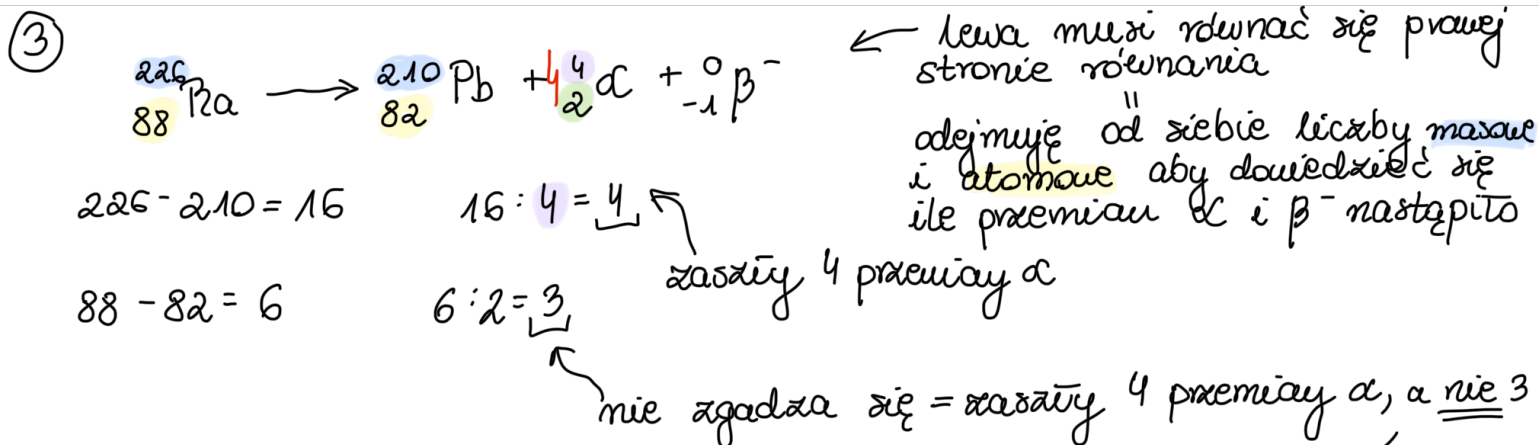 ③
²²⁶₈₈Ra → ²¹⁰₈₂Pb + 4 ⁴₂α + ⁰₋₁β⁻
← lewa musi równać się prawej
stronie równania
=
odejmuję od siebie liczby masowe
i atomowe aby dowiedzieć się
ile przemian α i β⁻ nastąpiło
226 - 210 = 16
16 : 4 = 4
zaszły 4 przemiay α
88 - 82 = 6
6 : 2 = 3
nie zgadza się = zaszły 4 przemiay α, a nie 3